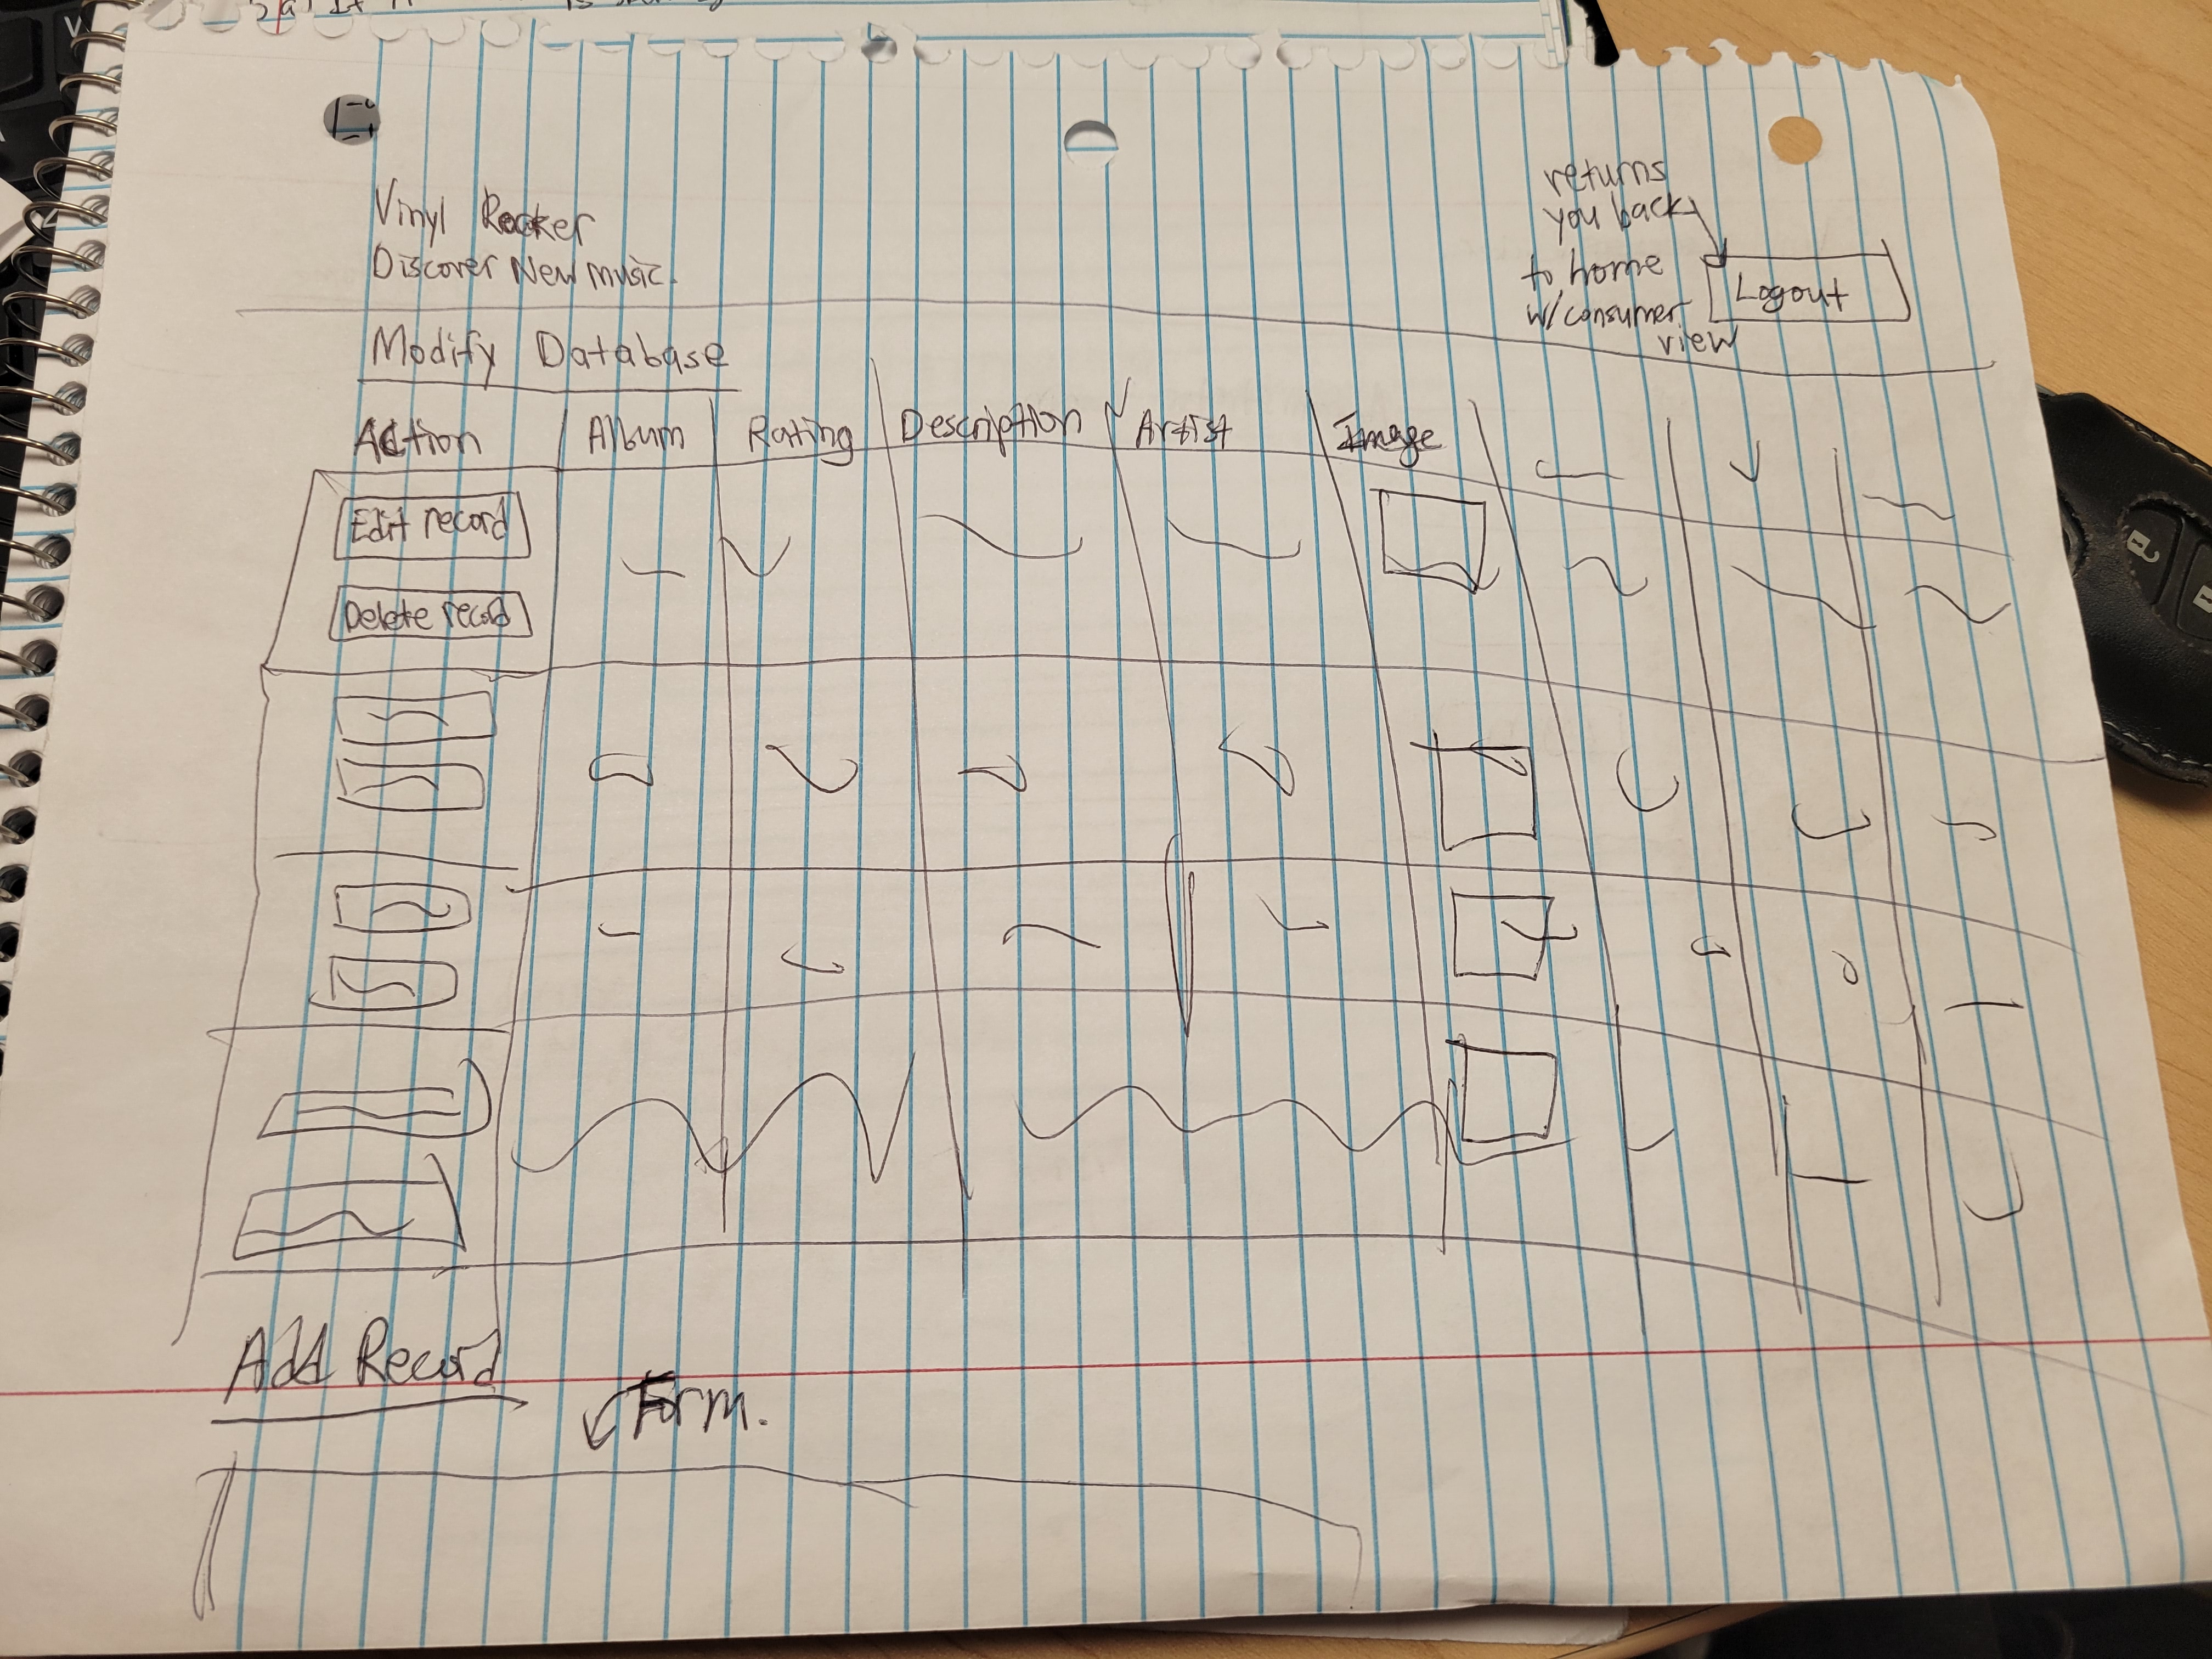 Vinyl Rocker
Discover New music.
returns
you back
to home
w/consumer
view
Logout
Modify Database
Action Album Rating Description Artist Image
Edit record
Delete record
Add Record
Form.